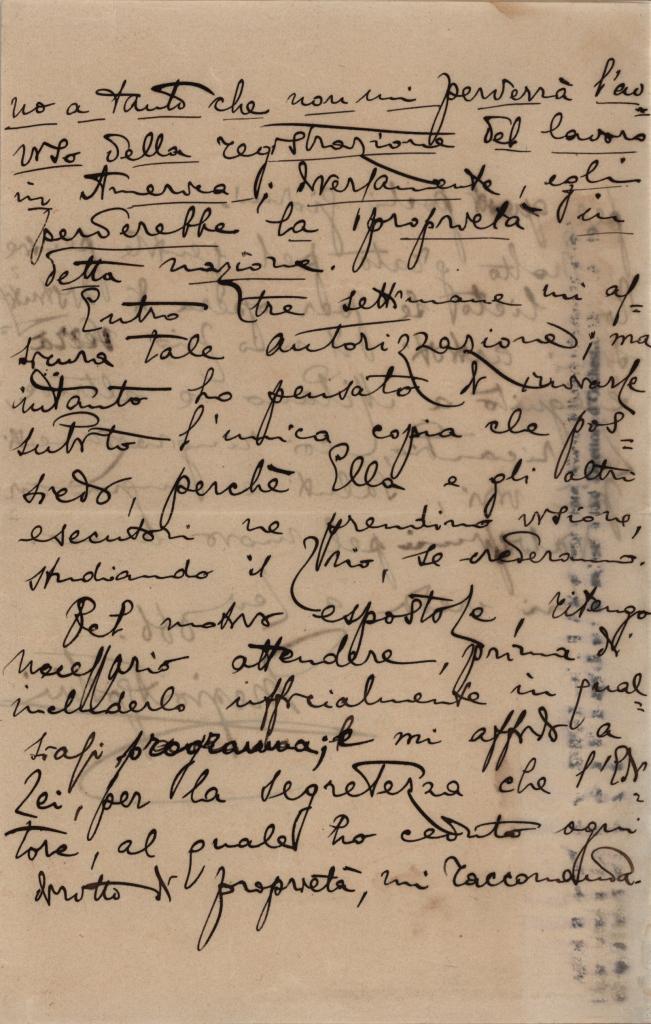 no a tanto che non mi perverrà l'av=
viso della registrazione del lavoro
in America; diversamente, egli
perderebbe la proprietà in
detta nazione.
Entro tre settimane mi as=
sicura tale autorizzazione; ma
intanto ho pensato di inviarle
subito l'unica copia che pos=
siedo, perchè Ella e gli altri
esecutori ne prendino visione,
studiando il Trio, se crederanno.
Pel motivo espostole, ritengo
necessario attendere, prima di
includerlo ufficialmente in qual=
siasi programma; e mi affido a
Lei, per la segretezza che l'Edi=
tore, al quale ho ceduto ogni
diritto di proprietà, mi raccomanda.